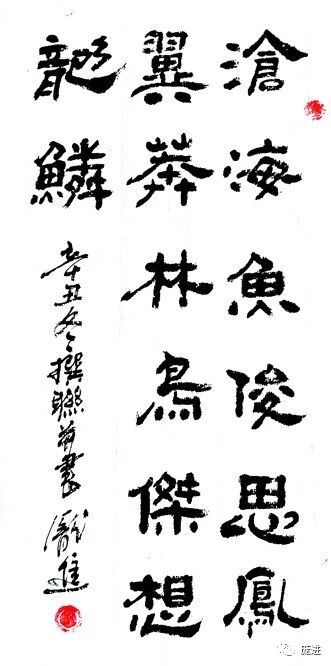 滄海魚俊思鳳
翼莽林鳥傑想
龍鱗
辛丑冬撰聯並書 龐進
庞进